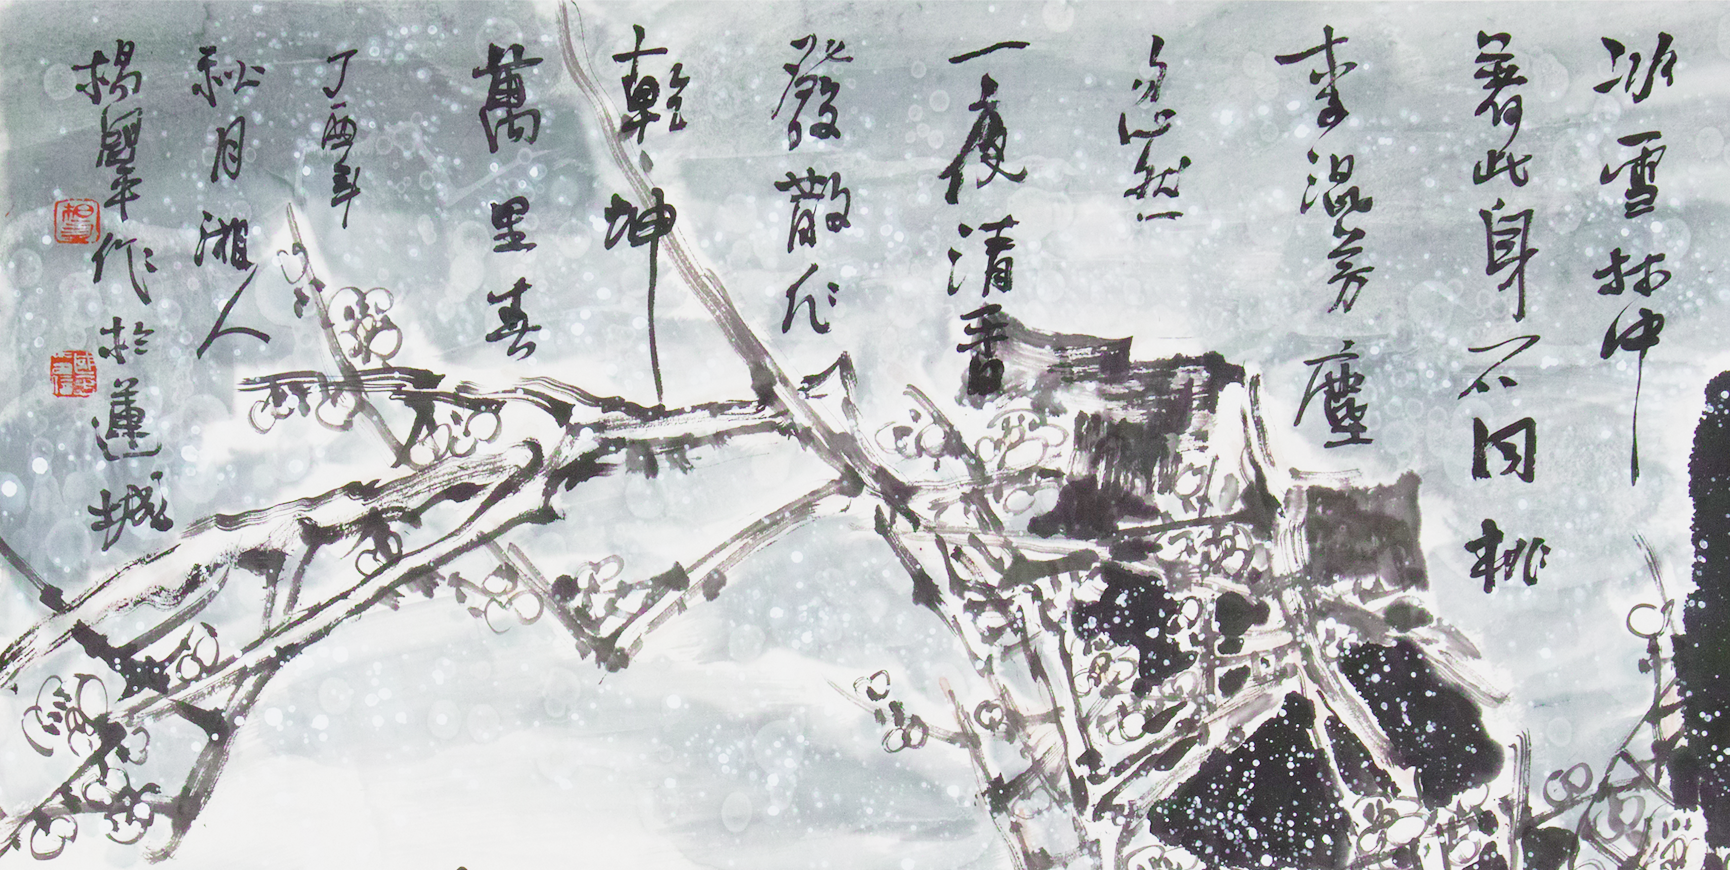 冰雪林中
著此身不同桃
李混芳塵
忽然一
一夜清香
發散作
乾坤
萬里春
丁酉年
秋月湘人
楊國平作於蓮城